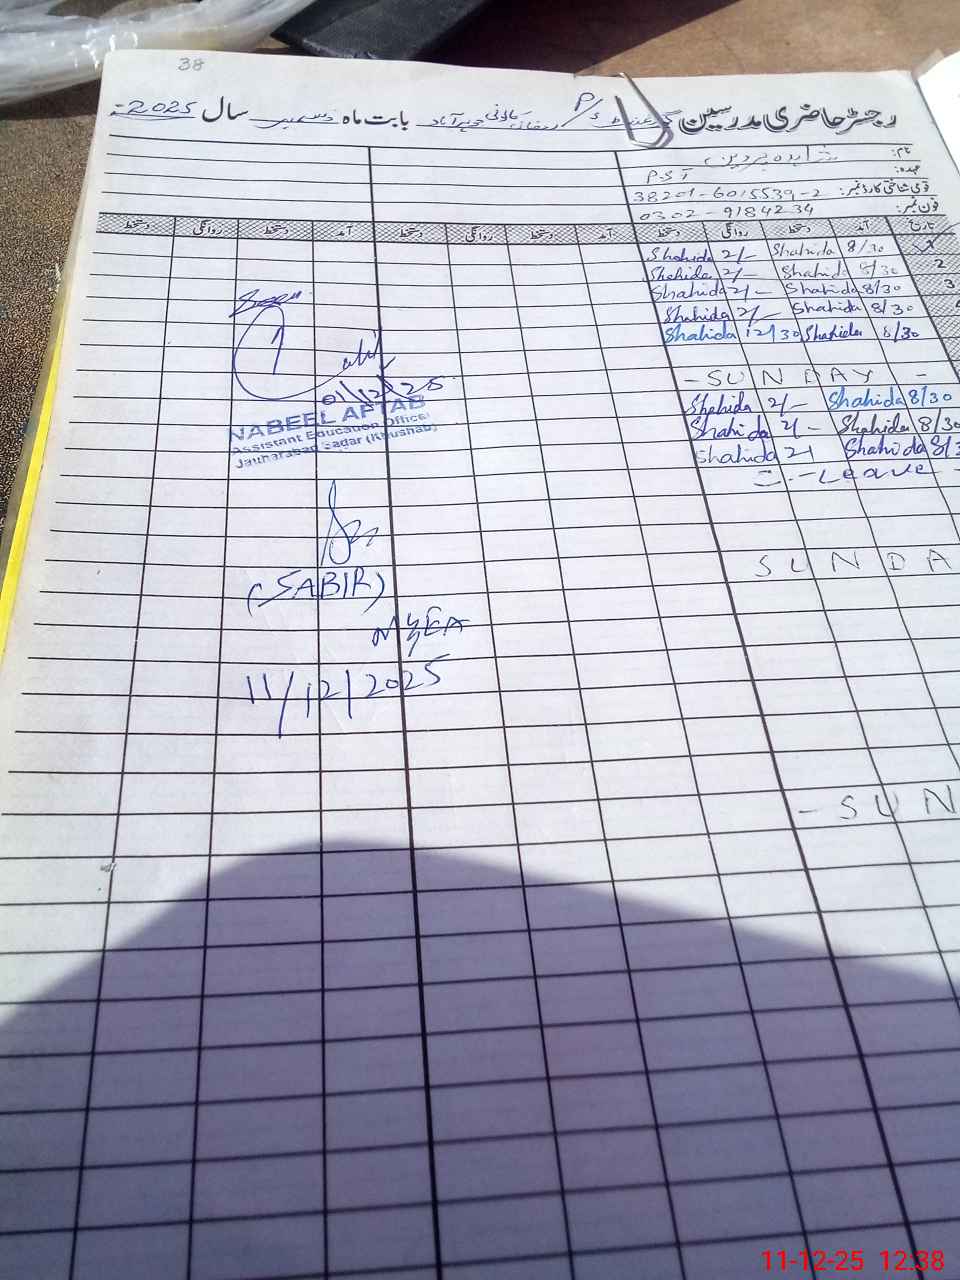 38
رجسٹر حاضری مدرسین P/S کالونی بابت ماہ دسمبر سال 2025
نام: شاہدہ پروین
عہدہ: PST
قومی شناختی کارڈ نمبر: 38201-6015539-2
فون نمبر: 0302-9184234
تاریخ آمد دستخط روانگی دستخط آمد دستخط روانگی دستخط آمد دستخط روانگی دستخط
1 8/30 Shahida 2/- Shahida
2 8/30 Shahida 2/- Shahida
3 8/30 Shahida 2/- Shahida
8/30 Shahida 2/- Shahida
8/30 Shahida 12/30 Shahida
- SUNDAY -
8/30 Shahida 2/- Shahida
8/30 Shahida 2/- Shahida
Shahida 2/ Shahida
Leave
SUNDA
- SUN
01/12/25
NABEEL AFTAB
Assistant Education Officer
Jauharabad Sadar (Khushab)
(SABIR)
11/12/2025
11-12-25 12:38